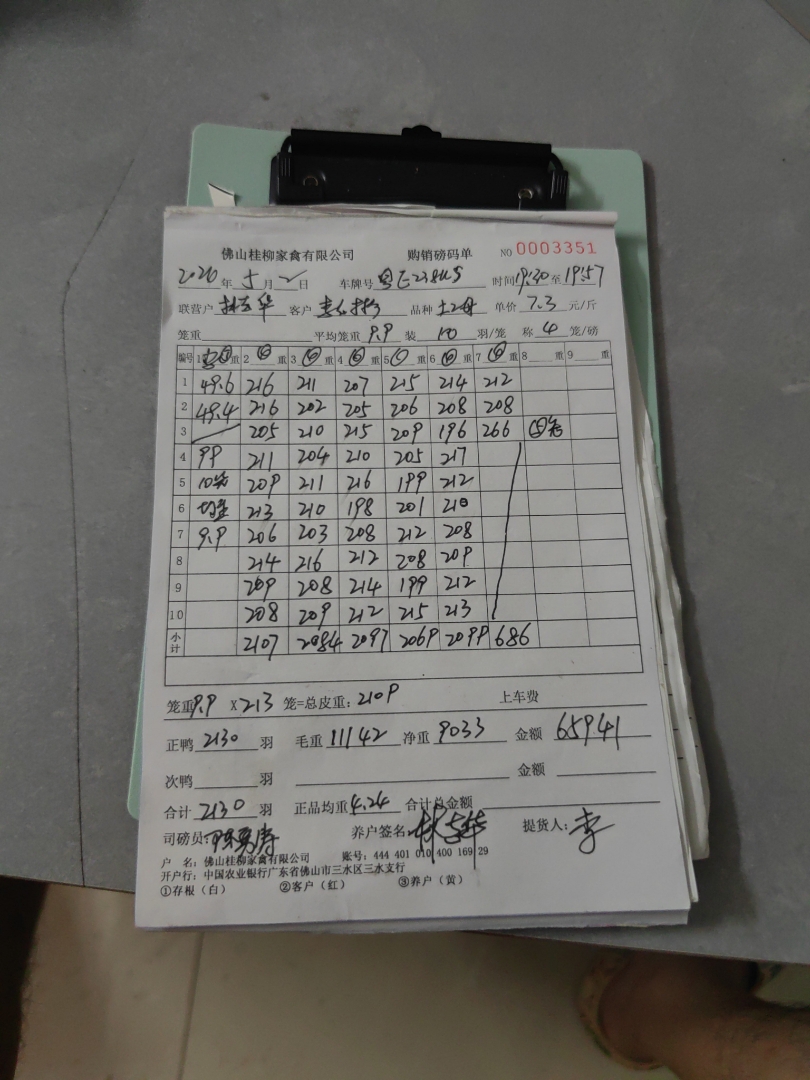 佛山桂柳家禽有限公司 购销磅码单 NO 0003351
2020年5月2日 车牌号 时间19:30至19:57
联营户 客户 品种 土2母 单价 7.3 元/斤
笼重 平均笼重 9.9 装 10 羽/笼 称 4 笼/磅
编号 1 重 2 ④ 重 3 ④ 重 4 ④ 重 5 重 6 ④ 重 7 ④ 重 8 重 9 重
1 49.6 216 211 207 215 214 212
2 49.4 216 202 205 206 208 208
3 205 210 215 209 196 266
4 99 211 204 210 205 217
5 10笼 209 211 216 199 212
6 213 210 198 201 210
7 9.9 206 203 208 212 208
8 214 216 212 208 209
9 209 208 214 199 212
10 208 209 212 215 213
小计 2107 2084 2097 2069 2099 686
笼重 9.9 X 213 笼=总皮重: 2109 上车费
正鸭 2130 羽 毛重 11142 净重 9033 金额 65941
次鸭 羽 金额
合计 2130 羽 正品均重 4.24 合计总金额
司磅员: 养户签名: 提货人: 李
户 名: 佛山桂柳家禽有限公司 账号: 444 401 010 400 169 29
开户行: 中国农业银行广东省佛山市三水区三水支行
①存根（白） ②客户（红） ③养户（黄）